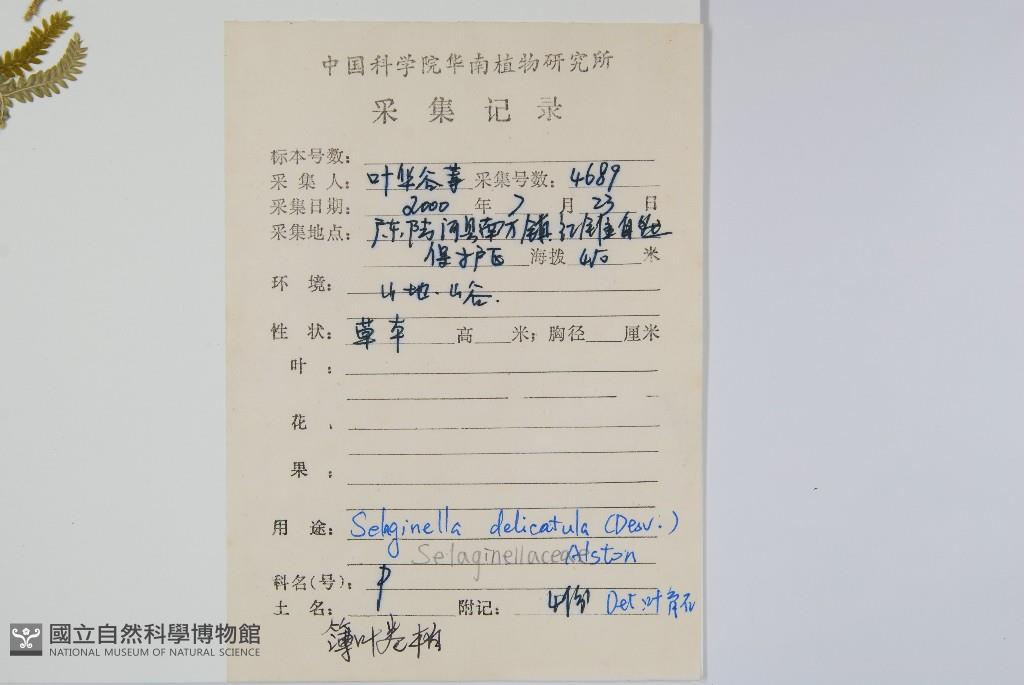 中国科学院华南植物研究所
采集记录
标本号数：
采集人：叶华谷等 采集号数：4689
采集日期：2000 年 7 月 23 日
采集地点：广东，陆河县南万镇红锥自然
保护区 海拨 450 米
环境：山地．山谷．
性状：草本 高 米；胸径 厘米
叶：
花
果：
用途：Selaginella delicatula (Desv.)
Selaginellaceae Alston
科名(号)：P
土名： 附记： 4份 Det：叶育石
薄叶卷柏
國立自然科學博物館
NATIONAL MUSEUM OF NATURAL SCIENCE